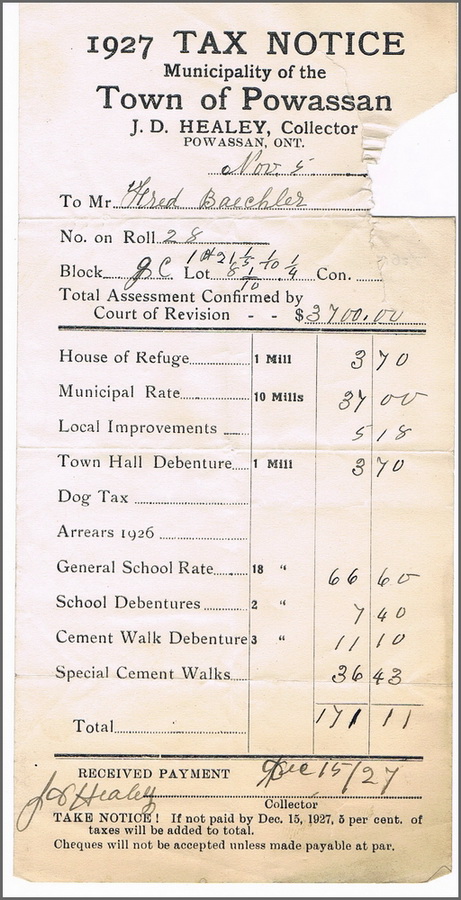 1927 TAX NOTICE
Municipality of the
Town of Powassan
J. D. HEALEY, Collector
POWASSAN, ONT.
Nov. 5
To Mr. Fred Baechler
No. on Roll 28
Block Lot Con.
Total Assessment Confirmed by
Court of Revision - - $3700.00
House of Refuge 1 Mill 3 70
Municipal Rate 10 Mills 37 00
Local Improvements 5 18
Town Hall Debenture 1 Mill 3 70
Dog Tax
Arrears 1926
General School Rate 18 “ 66 60
School Debentures 2 “ 7 40
Cement Walk Debenture 3 “ 11 10
Special Cement Walks 36 43
Total 171 11
RECEIVED PAYMENT Dec 15/27
J D Healey
Collector
TAKE NOTICE! If not paid by Dec. 15, 1927, 5 per cent. of
taxes will be added to total.
Cheques will not be accepted unless made payable at par.